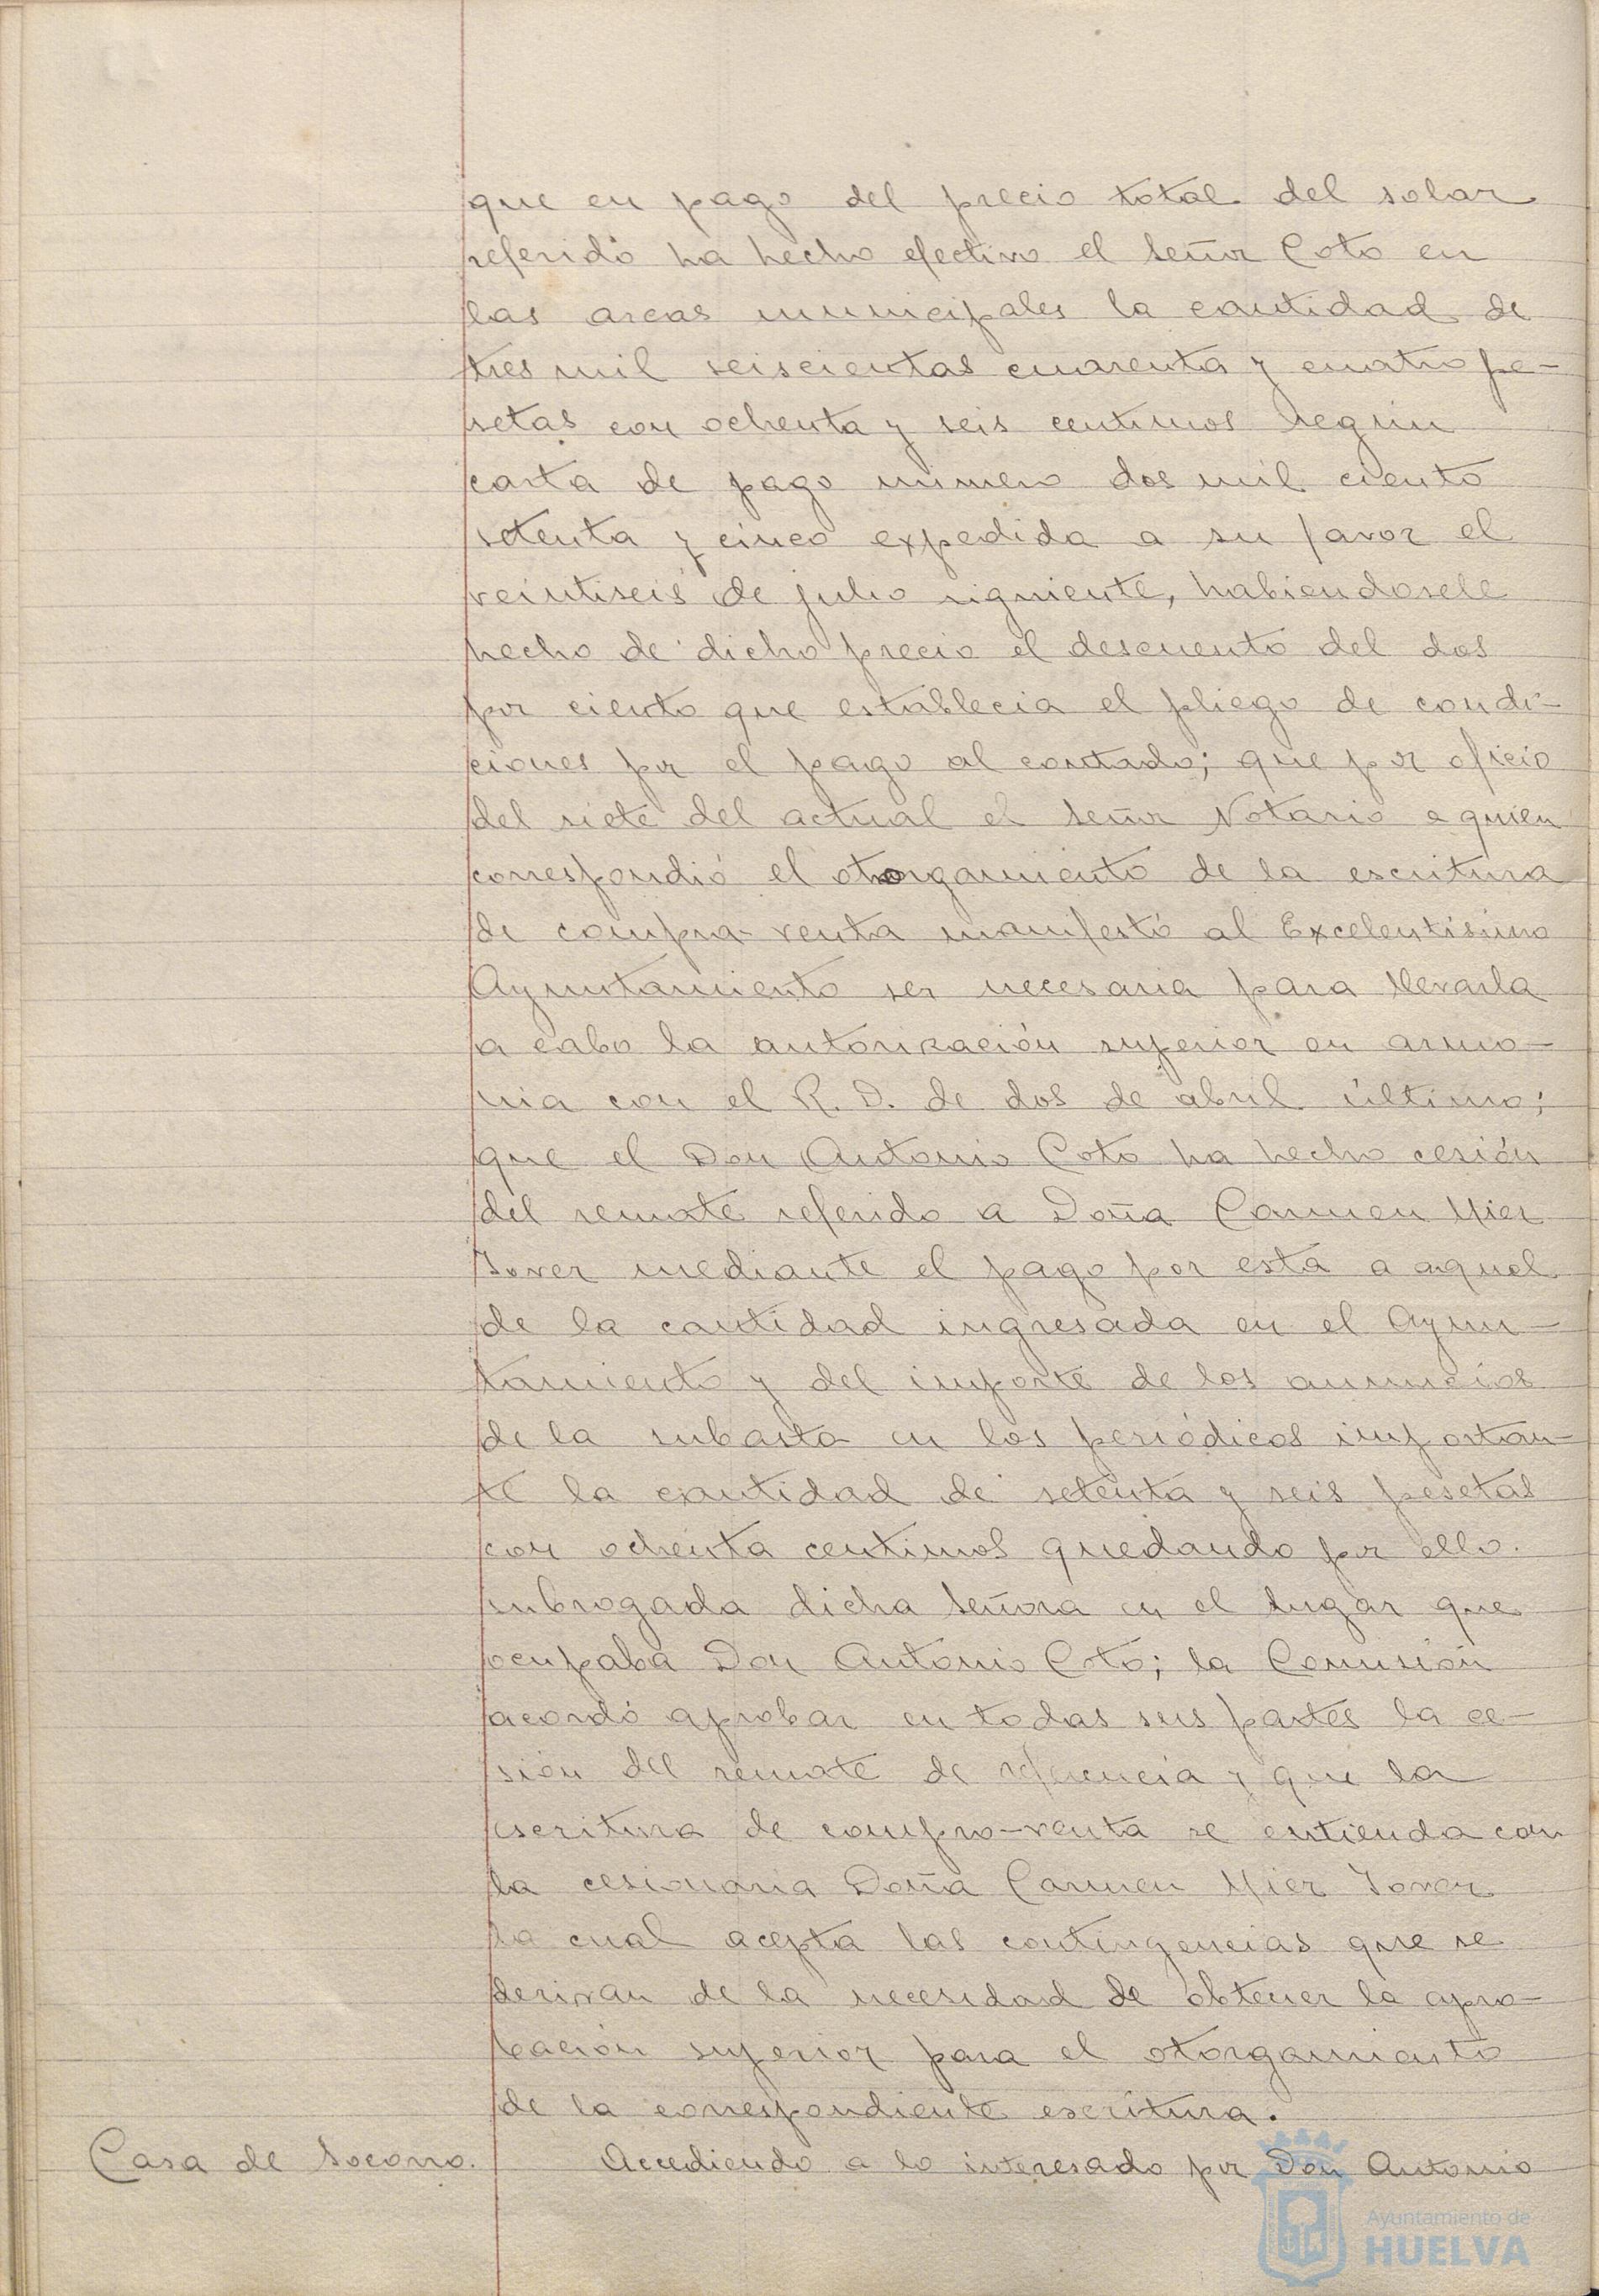 que en pago del precio total del solar
referido ha hecho efectivo el Señor Coto en
las arcas municipales la cantidad de
tres mil seiscientas cuarenta y cuatro pe-
setas con ochenta y seis centimos según
carta de pago número dos mil ciento
setenta y cinco expedida a su favor el
veintiseis de julio siguiente, habiendosele
hecho de dicho precio el descuento del dos
por ciento que establecia el pliego de condi-
ciones por el pago al contado; que por oficio
del siete del actual el Señor Notario a quien
correspondió el otorgamiento de la escritura
de compra-venta manifestó al Excelentísimo
Ayuntamiento ser necesaria para llevarla
a cabo la autorización superior en armo-
nia con el R. D. de dos de abril último;
que el Don Antonio Coto ha hecho cesión
del remate referido a Doña Carmen Mier
Jover mediante el pago por esta a aquel
de la cantidad ingresada en el Ayun-
tamiento y del importe de los anuncios
de la subasta en los periódicos importan-
te la cantidad de setenta y seis pesetas
con ochenta centimos quedando por ello
subrogada dicha Señora en el lugar que
ocupaba Don Antonio Coto; la Comisión
acordó aprobar en todas sus partes la ce-
sión del remate de referencia y que la
escritura de compra-venta se entienda con
la cesionaria Doña Carmen Mier Jover
la cual acepta las contingencias que se
derivan de la necesidad de obtener la apro-
bación superior para el otorgamiento
de la correspondiente escritura.
Casa de Socorro. Accediendo a lo interesado por Don Antonio
Ayuntamiento de
HUELVA